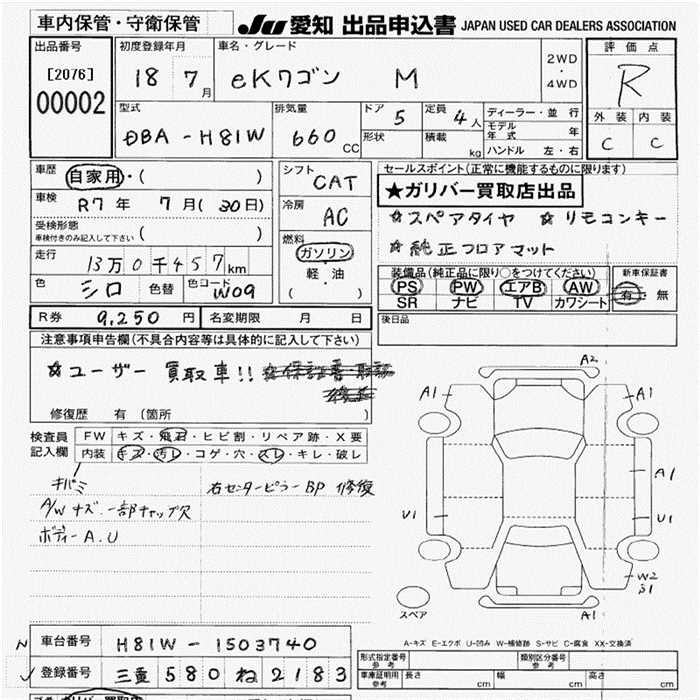 車内保管・守衛保管
JU 愛知 出品申込書 JAPAN USED CAR DEALERS ASSOCIATION
出品番号
[2076]
00002
初度登録年月
18 7月
車名・グレード
eKワゴン M
2WD
・
4WD
評価点
R
外装 内装
C C
型式
DBA-H81W
排気量
660 CC
ドア 5
形状
定員 4人
積載 kg
ディーラー・並行
モデル年式 年
ハンドル 左・右
車歴 自家用・( )
車検 R7年 7月(30日)
受検形態
車検付きのみ記入して下さい ( )
走行 13万0千457km
色 シロ 色替 色コード W09
シフト CAT
冷房 AC
燃料
ガソリン
軽・油
( )
セールスポイント(正常に機能するものに限ります)
★ガリバー買取店出品
☆スペアタイヤ ☆リモコンキー
☆純正フロアマット
装備品(純正品に限り○をつけてください)
PS PW エアB AW
SR ナビ TV カワシート
新車保証書
有・無
R券 9,250円 名変期限 月 日
後日品
注意事項申告欄(不具合内容等は具体的に記入して下さい)
☆ユーザー買取車!!
修復歴 有(箇所 )
検査員
記入欄
FW キズ・飛石・ヒビ割・リペア跡・X要
内装 キズ・汚レ・コゲ・穴・スレ・キレ・破レ
キバミ
A/Wキズ.一部キャップ欠
ボディーA.U
右センターピラーBP修復
A2
A1 A1
A1
U1 U1
W2
S1
A1
スペア
A-キズ E-エクボ U-凹み W-補修跡 S-サビ C-腐食 XX-交換済
車台番号 H81W-1503740
登録番号 三重580ね2183
形式指定番号
参考
類別区分番号
参考
車庫証明用
参考
長さ cm 幅 cm 高さ cm
ガリバー買取店